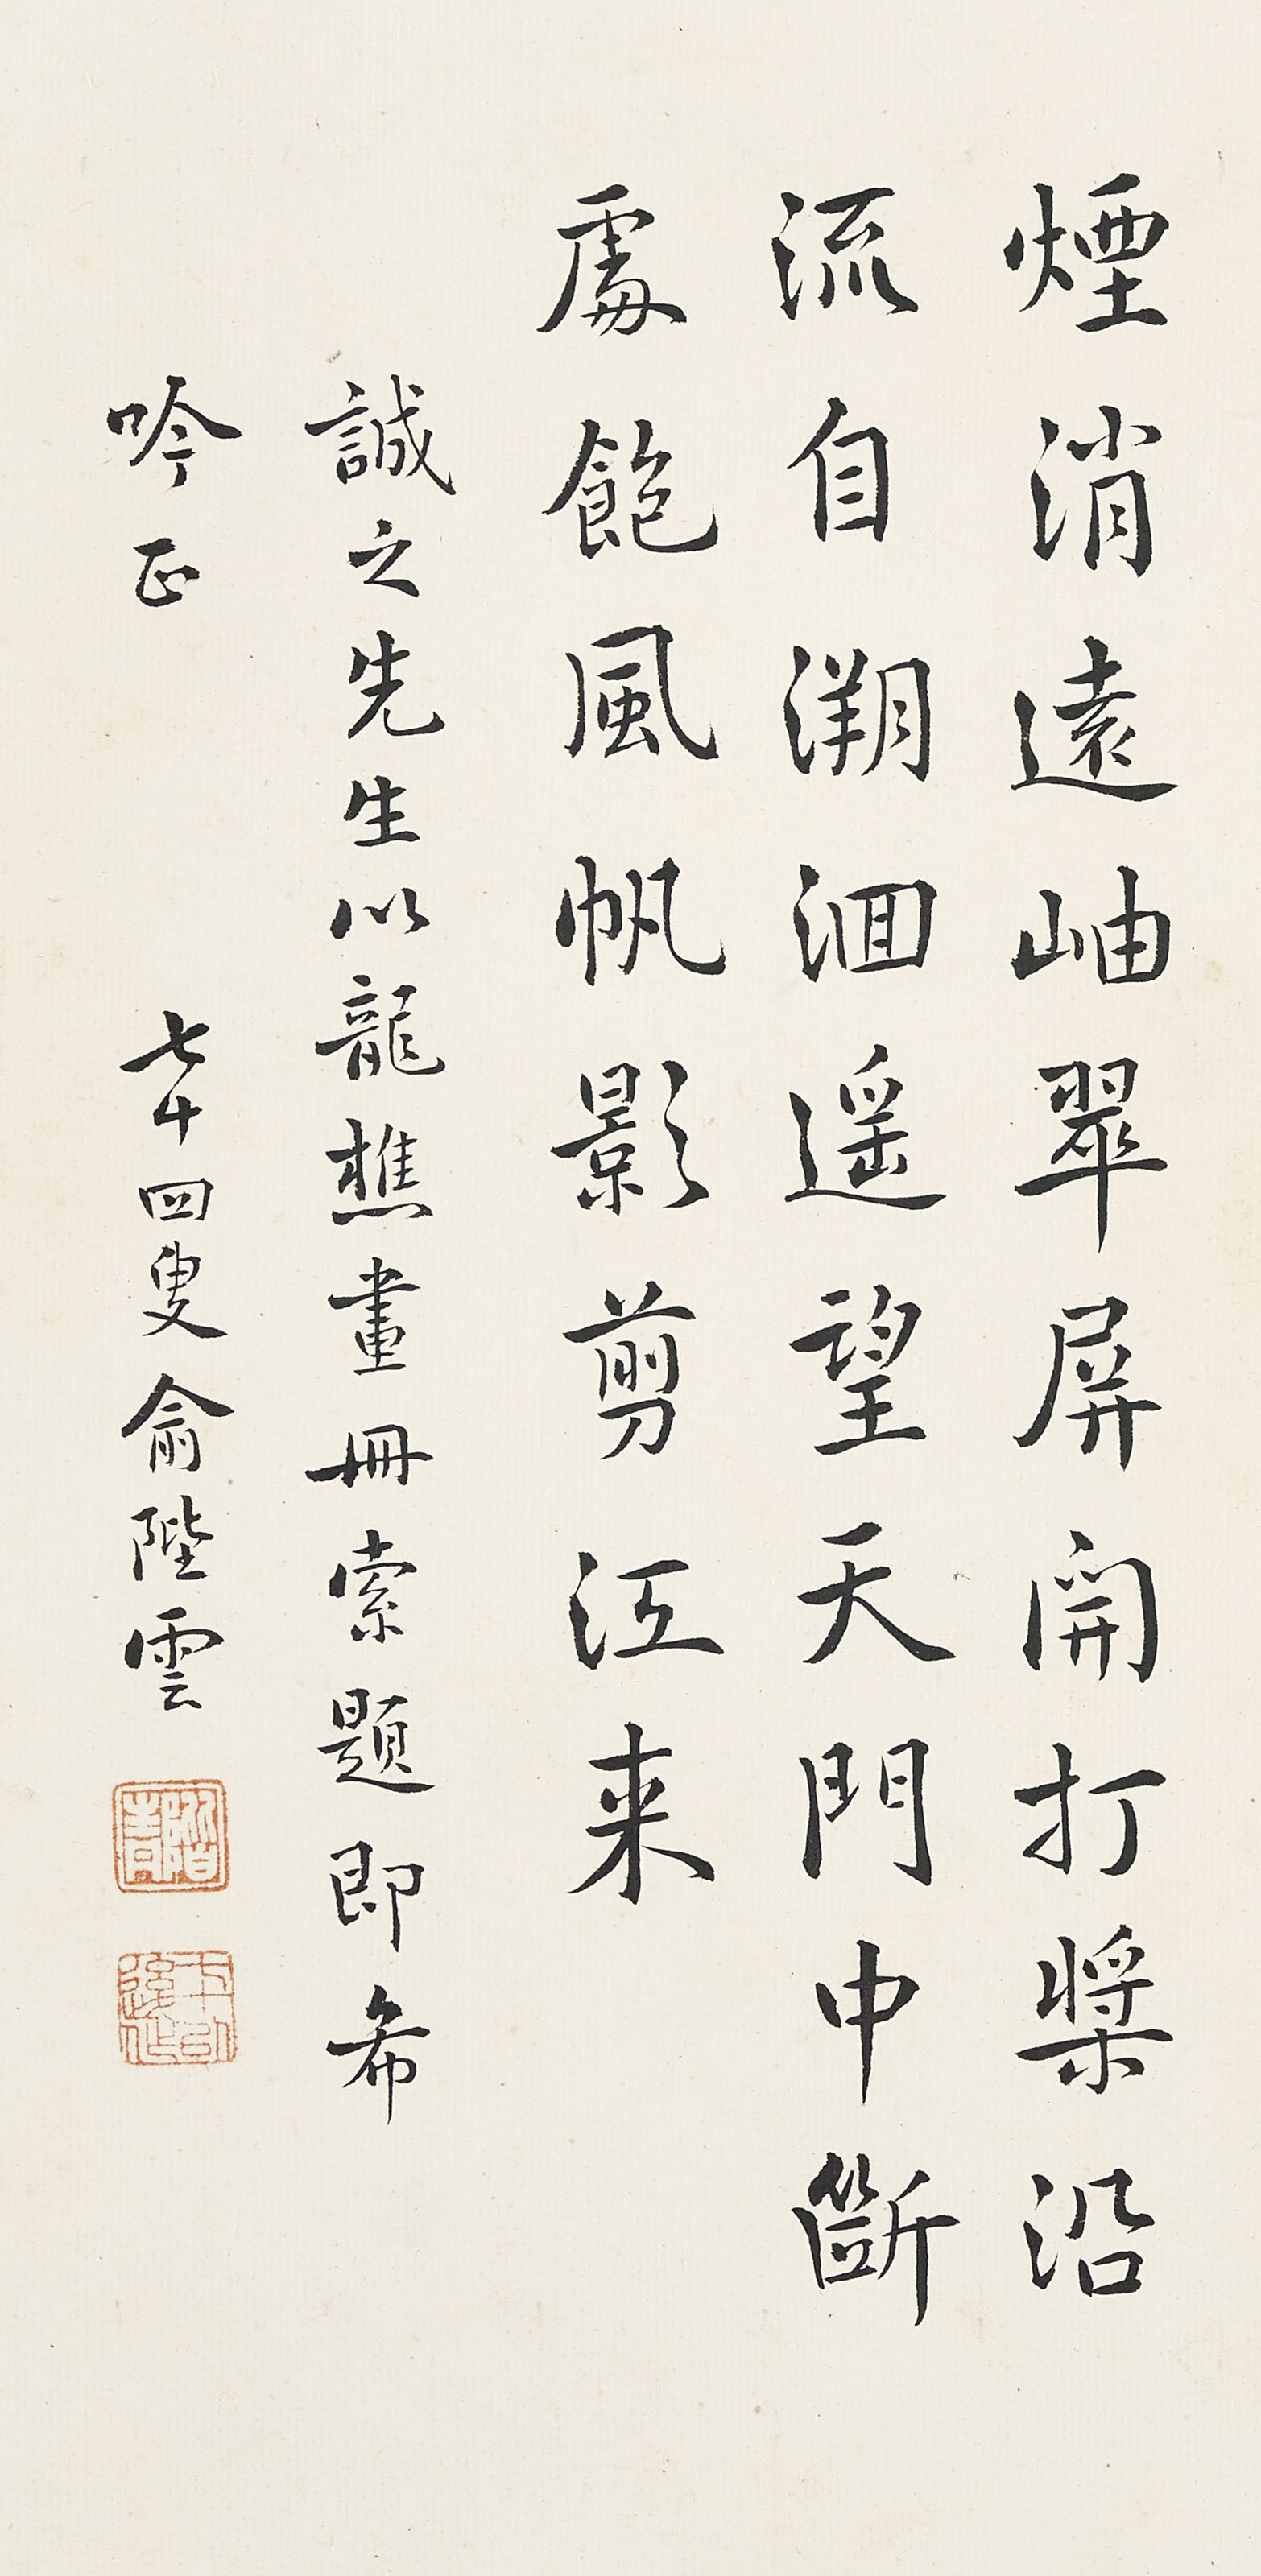 煙消遠岫翠屏開打槳沿
流自溯洄遥望天門中斷
處飽風帆影剪江来
誠之先生以龍樵畫冊索題即希
吟正
七十四叟俞陛雲